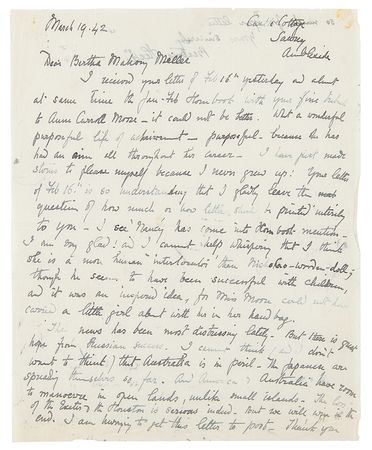 March 19. 42
Castle Cottage
Sawrey
Ambleside
Dear Bertha Mahony Miller
I received your letter of Feb 16th yesterday and about
at same time the Jan-Feb Hornbook with your fine tribute
to Anne Carroll Moore – it could not be better. What a wonderful
purposeful life of achievement – purposeful – because she has
had an aim all throughout her career – I have just made
stories to please myself because I never grew up! Your letter
of Feb 16th is so understanding that I gladly leave the
question of how much or how little, is printed entirely
to you – I see 'Nancy' has come into Hornbook mention –
I am very glad: and I cannot help whispering that I think
she is a more human 'interlocutor' than Nicholas – wooden-doll;
though he seems to have been successful with children,
and it was an inspired idea, for Miss Moore could not have
carried a little girl about with her in her handbag.
The news has been most distressing lately. But there is great
hope from Russian success. I cannot think (and I don't
want to think) that Australia is in peril. The Japanese are
spreading themselves so far. And America & Australia have room
to manoeuvre in open lands, unlike small islands. The loss
of the Exeter & the Houston is serious indeed. But we will win in the
end. I am hurrying to get this letter to post – Thank you